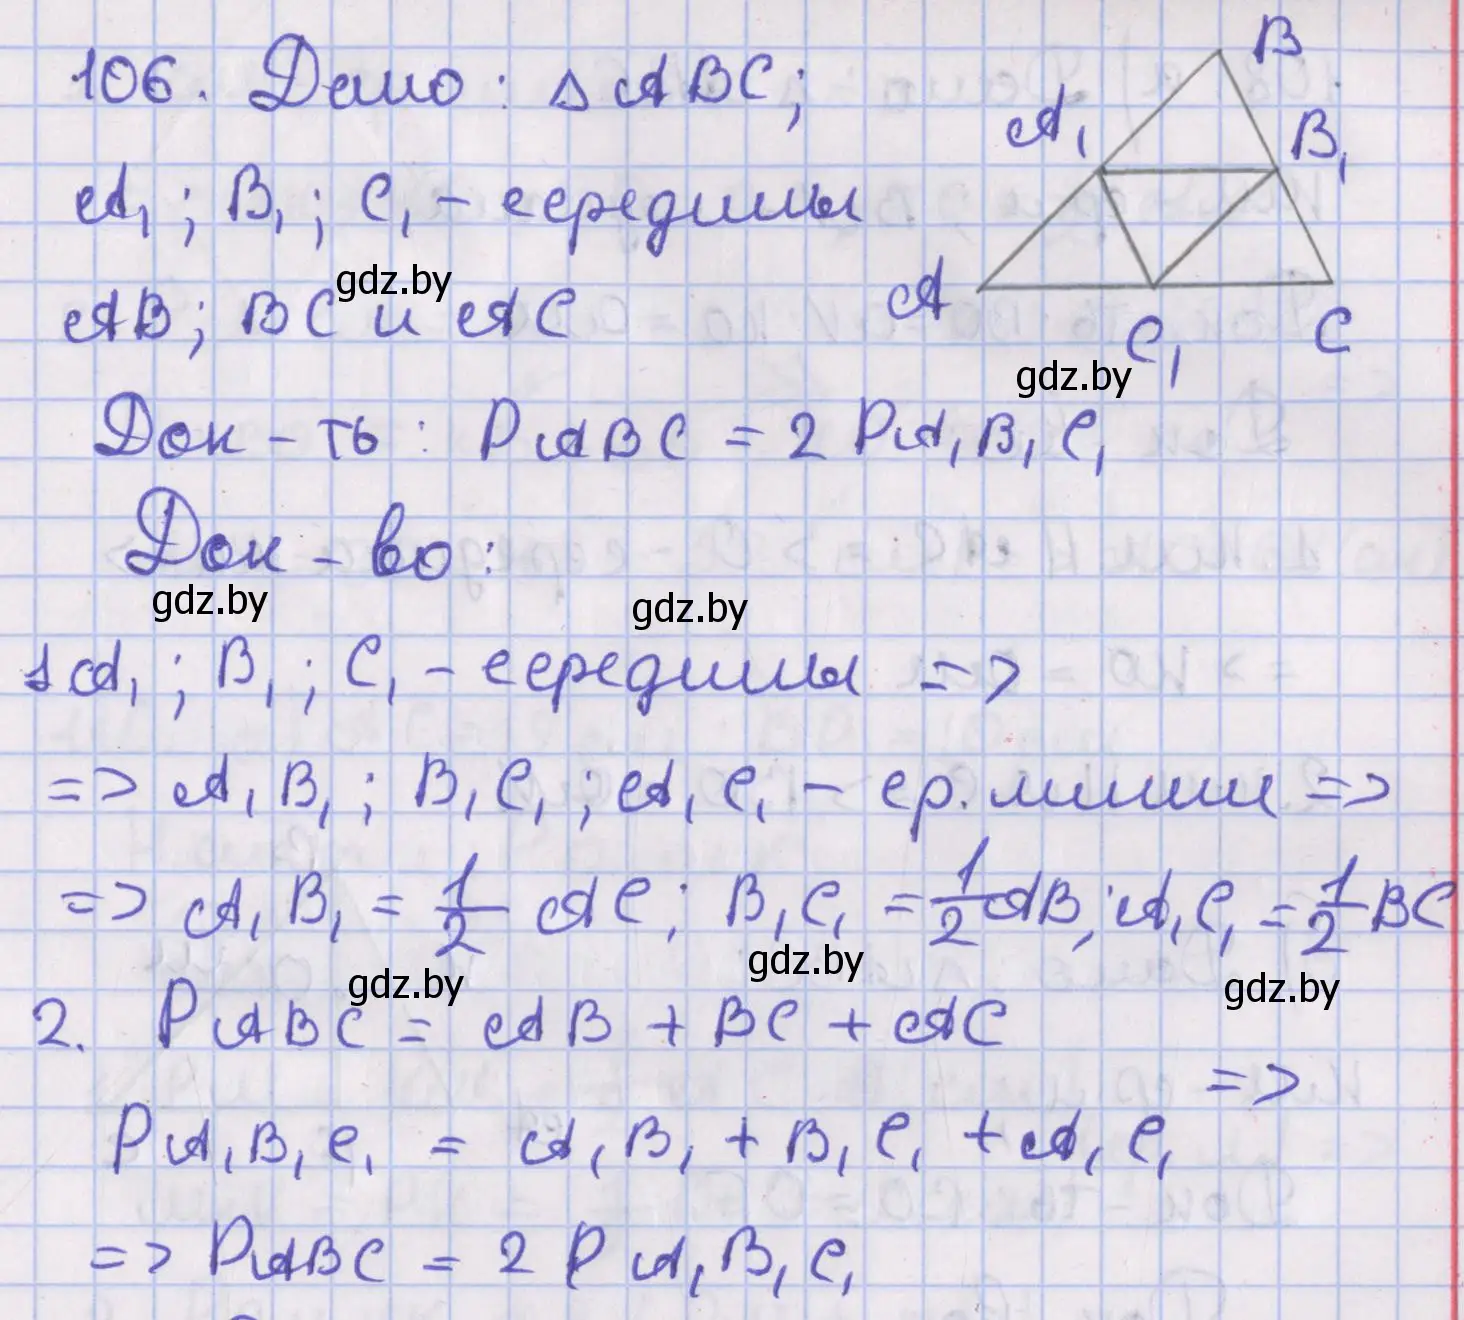 106. Дано: △ ABC;
A₁; B₁; C₁ - середины
AB; BC и AC
B
A₁
B₁
A
C₁
C
gdz.by
gdz.by
Док-ть: PABC = 2 PA₁B₁C₁
Док-во:
gdz.by
gdz.by
1 A₁; B₁; C₁ - середины =>
=> A₁B₁; B₁C₁; A₁C₁ - ср. линии =>
=> A₁B₁ = 1/2 AC; B₁C₁ = 1/2 AB; A₁C₁ = 1/2 BC
gdz.by
gdz.by
gdz.by
2. PABC = AB + BC + AC
=>
PA₁B₁C₁ = A₁B₁ + B₁C₁ + A₁C₁
=> PABC = 2 PA₁B₁C₁